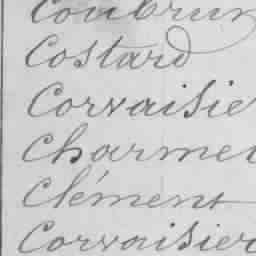 Coubrun
Costard
Corvaisie
Charme
Clément
Corvaisier